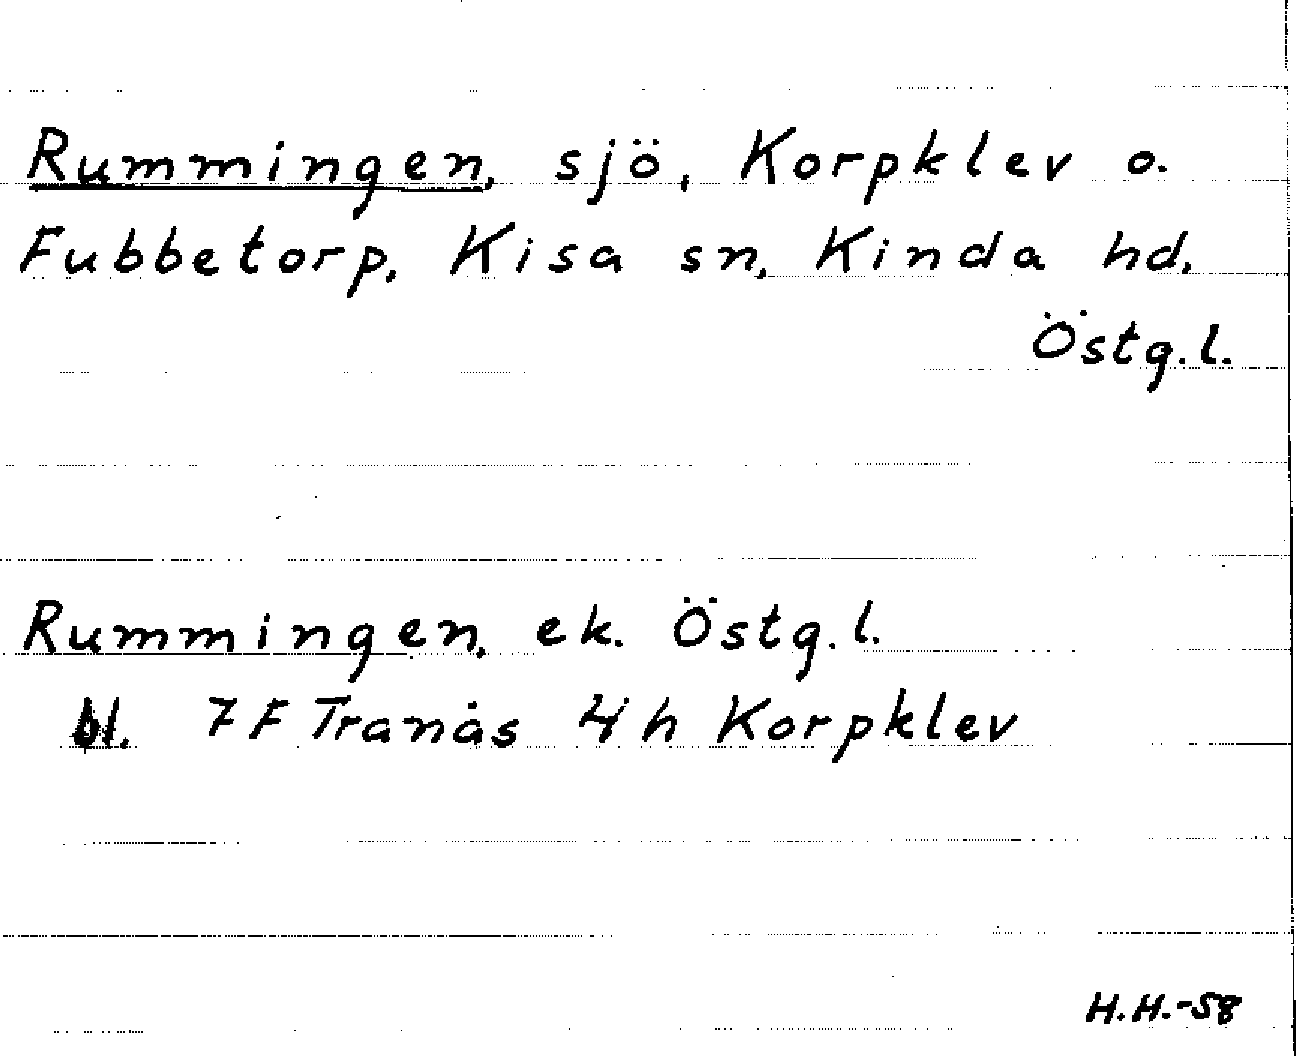 Rummingen, sjö, Korpklev o.
Fubbetorp, Kisa sn, Kinda hd,
Östg.l.
Rummingen, ek. Östg.l.
bl. 7F Tranås 4h Korpklev
H.H.-58